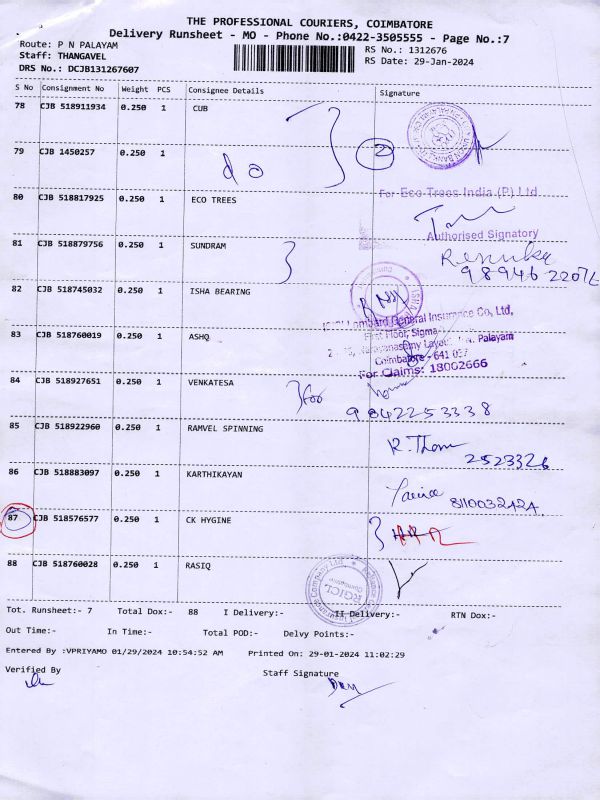 THE PROFESSIONAL COURIERS, COIMBATORE
Delivery Runsheet - MO - Phone No.:0422-3505555 - Page No.:7
Route: P N PALAYAM
RS No.: 1312676
Staff: THANGAVEL
RS Date: 29-Jan-2024
DRS No.: DCJB131267607
S No Consignment No Weight PCS Consignee Details Signature
78 CJB 518911934 0.250 1 CUB
79 CJB 1450257 0.250 1
do
2
80 CJB 518817925 0.250 1 ECO TREES
For Eco Trees India (P) Ltd
Authorised Signatory
81 CJB 518879756 0.250 1 SUNDRAM
Renuka
82 CJB 518745032 0.250 1 ISHA BEARING
Lombard General Insurance Co, Ltd,
83 CJB 518760019 0.250 1 ASHQ
Floor, Sigma
Palayam
Coimbatore - 641 037
For Claims: 18002666
84 CJB 518927651 0.250 1 VENKATESA
9842253338
85 CJB 518922960 0.250 1 RAMVEL SPINNING
2523326
86 CJB 518883097 0.250 1 KARTHIKAYAN
8110032424
87 CJB 518576577 0.250 1 CK HYGINE
88 CJB 518760028 0.250 1 RASIQ
Tot. Runsheet:- 7 Total Dox:- 88 I Delivery:- II Delivery:- RTN Dox:-
Out Time:- In Time:- Total POD:- Delvy Points:-
Entered By :VPRIYAMO 01/29/2024 10:54:52 AM Printed On: 29-01-2024 11:02:29
Verified By
Staff Signature